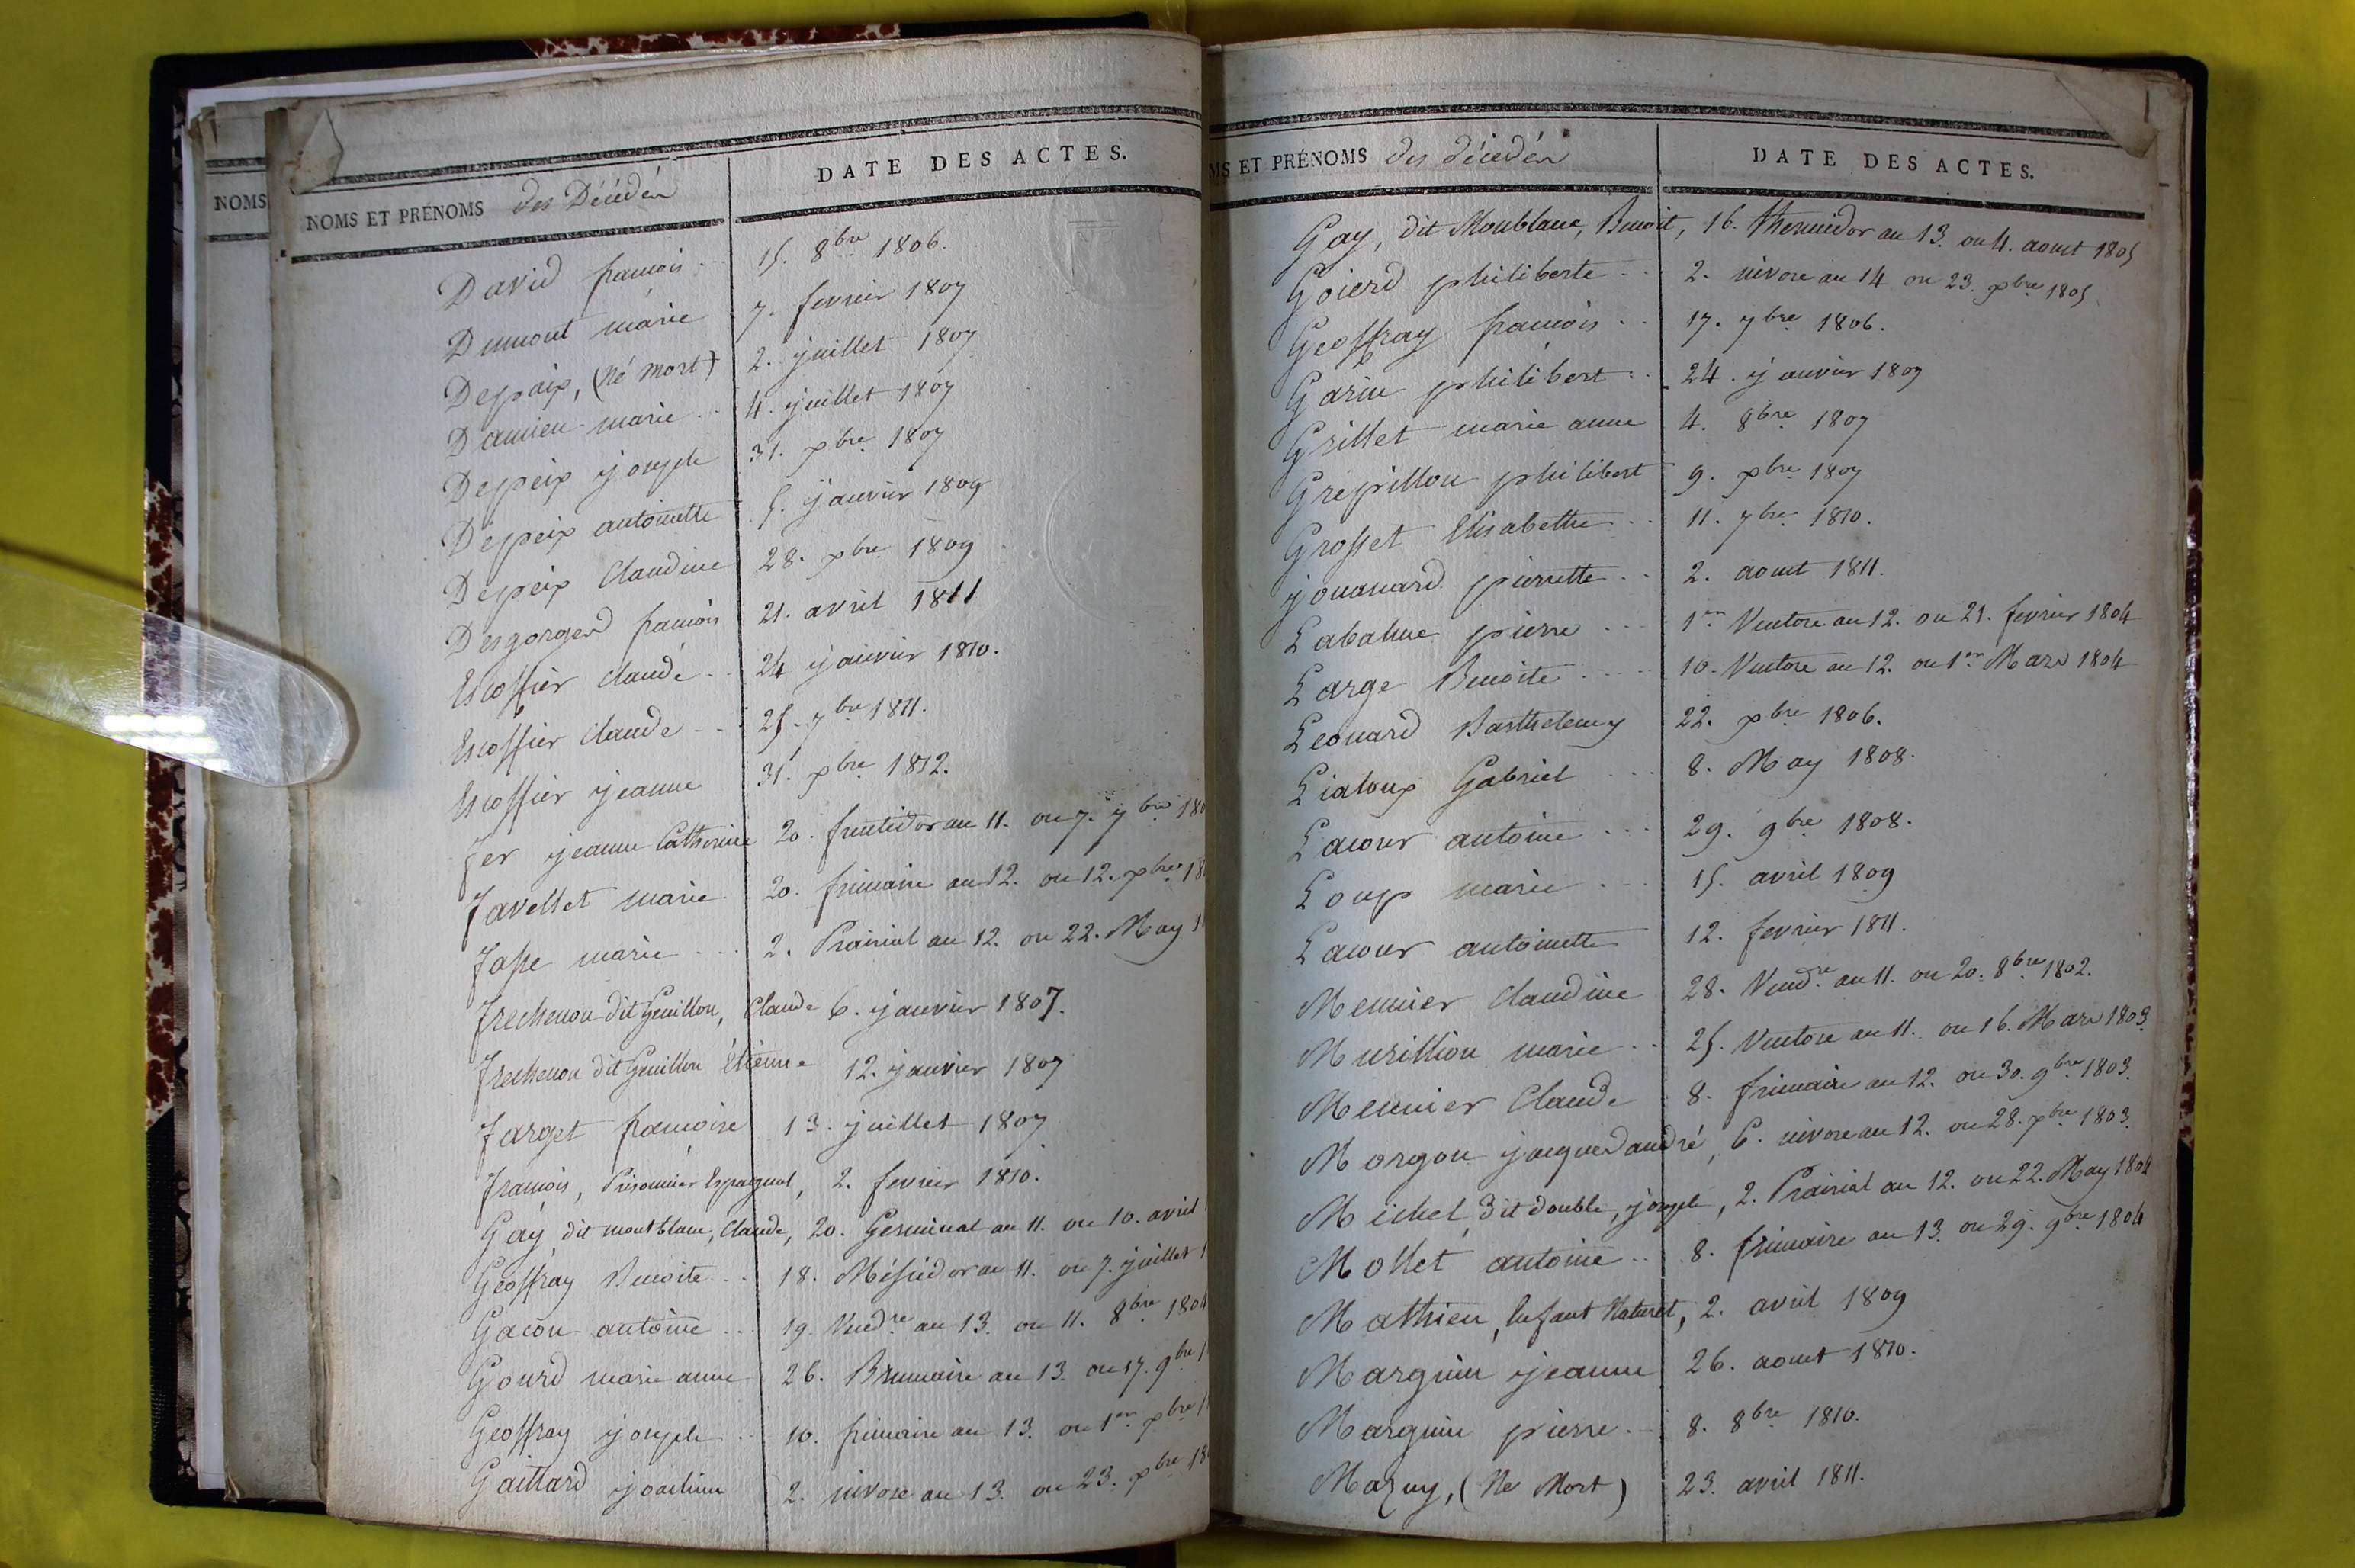 NOMS
NOMS ET PRÉNOMS des Décédés DATE DES ACTES.
David francois .. 15. 8bre 1806.
Dumont marie 7. fevrier 1807
Depaix, (Né mort) 2. juillet 1807
Damien marie .. 4. juillet 1807
Depeix joseph 31. xbre 1807
Depeix antoinette 5. janvier 1809
Depeix Claudine 28. xbre 1809
Desgorges francois 21. avril 1811
Escoffier claude .. 24 janvier 1810.
Escoffier Claude ... 25. 7bre 1811.
Escoffier jeanne 31. xbre 1812.
Fer jeanne Catherine 20. fructidor an 11. ou 7. 7bre 180
Favellet marie 20. frimaire an 12. ou 12. xbre 18
Fasse marie ... 2. Prairial an 12. ou 22. May 1
Frechenon dit Genillon, Claude 6. janvier 1807.
Frechenon dit Genillon Etienne 12. janvier 1807
Farget francoise 13. juillet 1807
Francois, Prisonnier Espagnol, 2. fevrier 1810.
Gay dit montblanc, Claude, 20. Germinal an 11. ou 10. avril
Geoffray Benoite .. 18. Messidor an 11. ou 7. juillet 1
Gacon antoine ... 19. Vendre an 13. ou 11. 8bre 1804
Gourd marie anne 26. Brumaire an 13. ou 17. 9bre 1
Geoffray joseph .. 10. frimaire an 13. ou 1er xbre 1
Gaillard joachim 2. nivose an 13. ou 23. xbre 18
MS ET PRÉNOMS des décédés DATE DES ACTES.
Gay, dit Monblanc, Benoit, 16. thermidor an 13. ou 4. aoust 1805
Goierd philiberte .. 2. nivose an 14 ou 23. xbre 1805.
Geoffray francois .. 17. 7bre 1806.
Garin philibert .. 24. janvier 1807
Grillet marie anne 4. 8bre 1807
Grepillon philibert 9. xbre 1807
Grosset Elisabethe .. 11. 7bre 1810.
jouanard pierrette .. 2. aoust 1811.
Labalme pierre ... 1er Ventose an 12. ou 21. fevrier 1804
Large Benoite .... 10. Ventose an 12. ou 1er Mars 1804
Leonard Barthelemy 22. xbre 1806.
Lialoux Gabriel ... 8. May 1808.
Lacour antoine ... 29. 9bre 1808.
Loup marie ... 15. avril 1809
Lacour antoinette 12. fevrier 1811.
Mennier Claudine 28. Vendre an 11. ou 20. 8bre 1802.
Murillion marie .. 25. Ventose an 11. ou 16. Mars 1803.
Mennier Claude 8. frimaire an 12. ou 30. 9bre 1803.
Morgon jacques andré, 6. nivose an 12. ou 28. xbre 1803.
Michel, dit double, joseph, 2. Prairial an 12. ou 22. May 1804
Mollet antoine .. 8. frimaire an 13. ou 29. 9bre 1804
Mathieu, Enfant Naturel, 2. avril 1809
Marguin jeanne 26. aoust 1810.
Marguin pierre .. 8. 8bre 1810.
Mazuy, (Né Mort) 23. avril 1811.